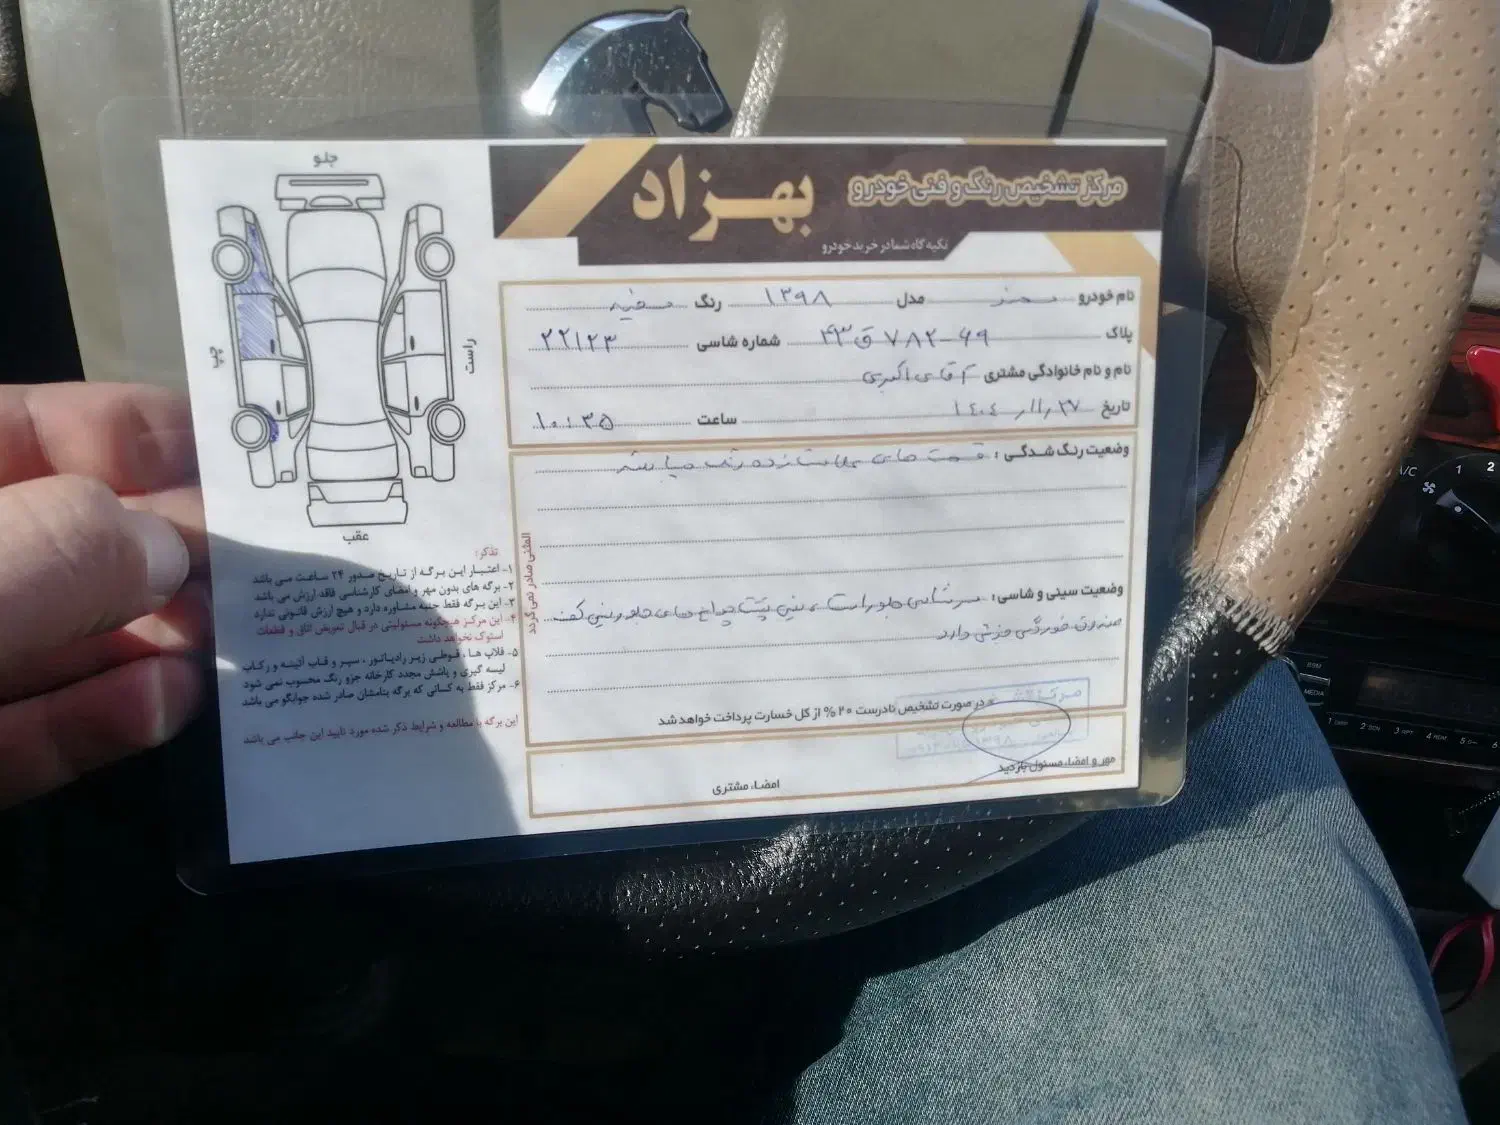 مرکز تشخیص رنگ و فنی خودرو
بهزاد
تکیه گاه شما در خرید خودرو
نام خودرو سمند مدل ۱۳۹۸ رنگ سفید
پلاک ۶۹-۷۸۲ ق ۴۳ شماره شاسی ۲۲۱۲۳
نام و نام خانوادگی مشتری آقای اکبری
تاریخ ۲۷/۱۱/۱۴۰۴ ساعت ۱۰:۳۵
وضعیت رنگ شدگی: قسمت های علامت زده رنگ میباشد
وضعیت سینی و شاسی: سرشاسی جلو راست، سینی پشت چراغ های جلو، سینی کف
صندوق خوردگی جزئی دارد
در صورت تشخیص نادرست ۲۰% از کل خسارت پرداخت خواهد شد
مهر و امضاء مسئول بازدید
امضاء مشتری
المثنی صادر نمی گردد
جلو
چپ
راست
عقب
تذکر:
۱- اعتبار این برگه از تاریخ صدور ۲۴ ساعت می باشد
۲- برگه های بدون مهر و امضای کارشناسی فاقد ارزش می باشد
۳- این برگه فقط جنبه مشاوره دارد و هیچ ارزش قانونی ندارد
۴- این مرکز هیچگونه مسئولیتی در قبال تعویض اتاق و قطعات
استوک نخواهد داشت
۵- فلاپ ها، قوطی زیر رادیاتور، سپر و قاب آئینه و رکاب
لیسه گیری و پاشش مجدد کارخانه جزو رنگ محسوب نمی شود
۶- مرکز فقط به کسانی که برگه بنامشان صادر شده جوابگو می باشد
این برگه با مطالعه و شرایط ذکر شده مورد تایید این جانب می باشد
A/C
1 2
BSM
MEDIA
2 SCN
3 RPT
4 RDM